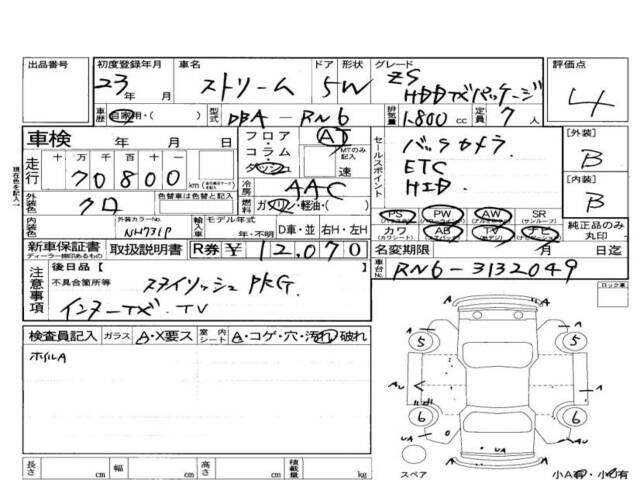 出品番号 初度登録年月 車名 ドア 形状 グレード 評価点
23年 月 ストリーム 5W ZS
HDDナビパッケージ 4
車歴 自家用・( ) 型式 DBA-RN6 排気量 1800 cc 定員 7人
車検 年 月 日 フロア・コラム・ダッシュ AT MTのみ記入 速 セールスポイント バックカメラ [外装]
走行 十 万 千 百 十 一 ETC B
70800 km HID [内装]
冷房 AAC B
外装色 クロ 色替車は色替と記入 燃料 ガソリン・軽油・( ) PS PW AW SR 純正品のみ丸印
内装色 外装カラーNo. NH731P 輸入車 モデル年式 年・不明 D車・並 右H・左H カワ AB TV ナビ
現在色を記入↑
新車保証書 取扱説明書 R券 ¥ 12,070 名変期限 月 日迄
ディーラー捺印あるもの
車台No. RN6-3132049
注意事項 後日品[ ] ロック車
不具合箇所等 スタイリッシュPKG.
インターナビ TV
検査員記入 ガラス A・X要ス 室内シート A・コゲ・穴・汚れ・破れ
ホイルA
A A
5 5
AU A
6 6
UA UA A
長さ cm 幅 cm 高さ cm 積載量 kg
スペア 小A有・小U有